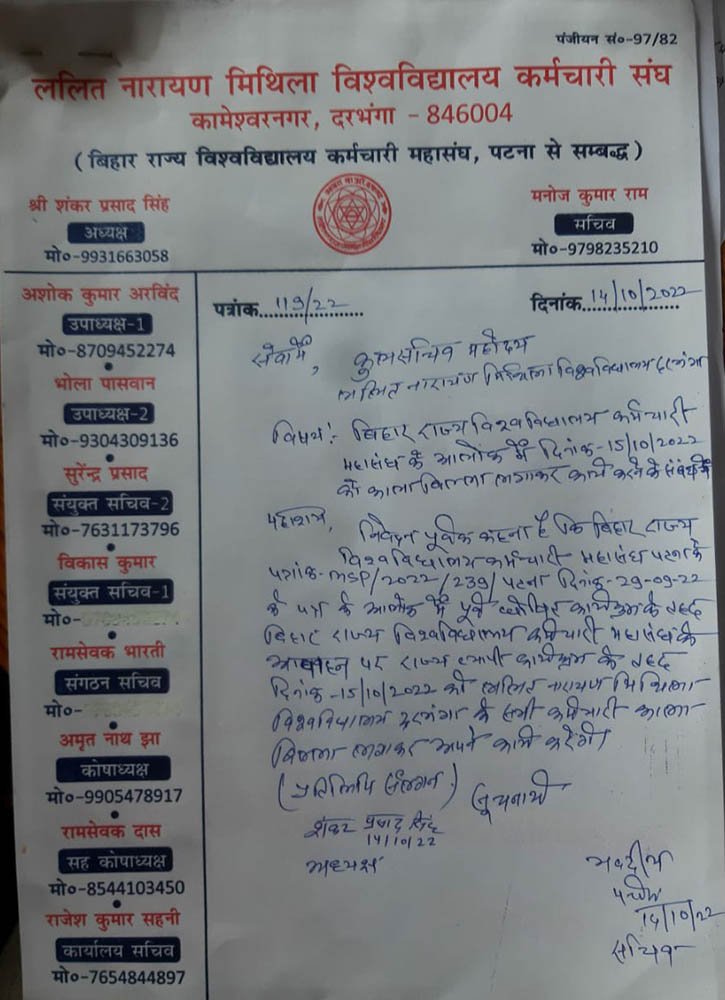 पंजीयन सं०-97/82
ललित नारायण मिथिला विश्वविद्यालय कर्मचारी संघ
कामेश्वरनगर, दरभंगा - 846004
( बिहार राज्य विश्वविद्यालय कर्मचारी महासंघ, पटना से सम्बद्ध )
श्री शंकर प्रसाद सिंह
अध्यक्ष
मो०-9931663058
मनोज कुमार राम
सचिव
मो०-9798235210
अशोक कुमार अरविंद
उपाध्यक्ष-1
मो०-8709452274
भोला पासवान
उपाध्यक्ष-2
मो०-9304309136
सुरेन्द्र प्रसाद
संयुक्त सचिव-2
मो०-7631173796
विकास कुमार
संयुक्त सचिव-1
मो०-
रामसेवक भारती
संगठन सचिव
मो०-
अमृत नाथ झा
कोषाध्यक्ष
मो०-9905478917
रामसेवक दास
सह कोषाध्यक्ष
मो०-8544103450
राजेश कुमार सहनी
कार्यालय सचिव
मो०-7654844897
पत्रांक 119/22
दिनांक 14/10/2022
सेवामें, कुलसचिव महोदय
ललित नारायण मिथिला विश्वविद्यालय दरभंगा
विषय:- बिहार राज्य विश्वविद्यालय कर्मचारी
महासंघ के आलोक में दिनांक-15/10/2022
को काला बिल्ला लगाकर कार्य करने के संबंध में
महाशय,
निवेदन पूर्वक कहना है कि बिहार राज्य
विश्वविद्यालय कर्मचारी महासंघ पटना के
पत्रांक-MSP/2022/239/पटना दिनांक-29-09-22
के पत्र के आलोक में पूर्व घोषित कार्यक्रम के तहत
बिहार राज्य विश्वविद्यालय कर्मचारी महासंघ के
आवाहन पर राज्य व्यापी कार्यक्रम के तहत
दिनांक-15/10/2022 को ललित नारायण मिथिला
विश्वविद्यालय दरभंगा के सभी कर्मचारी काला
बिल्ला लगाकर अपने कार्य करेंगे।
(प्रतिलिपि संलग्न)
सूचनार्थ
शंकर प्रसाद सिंह
14/10/22
अध्यक्ष
भवदीय
14/10/22
सचिव